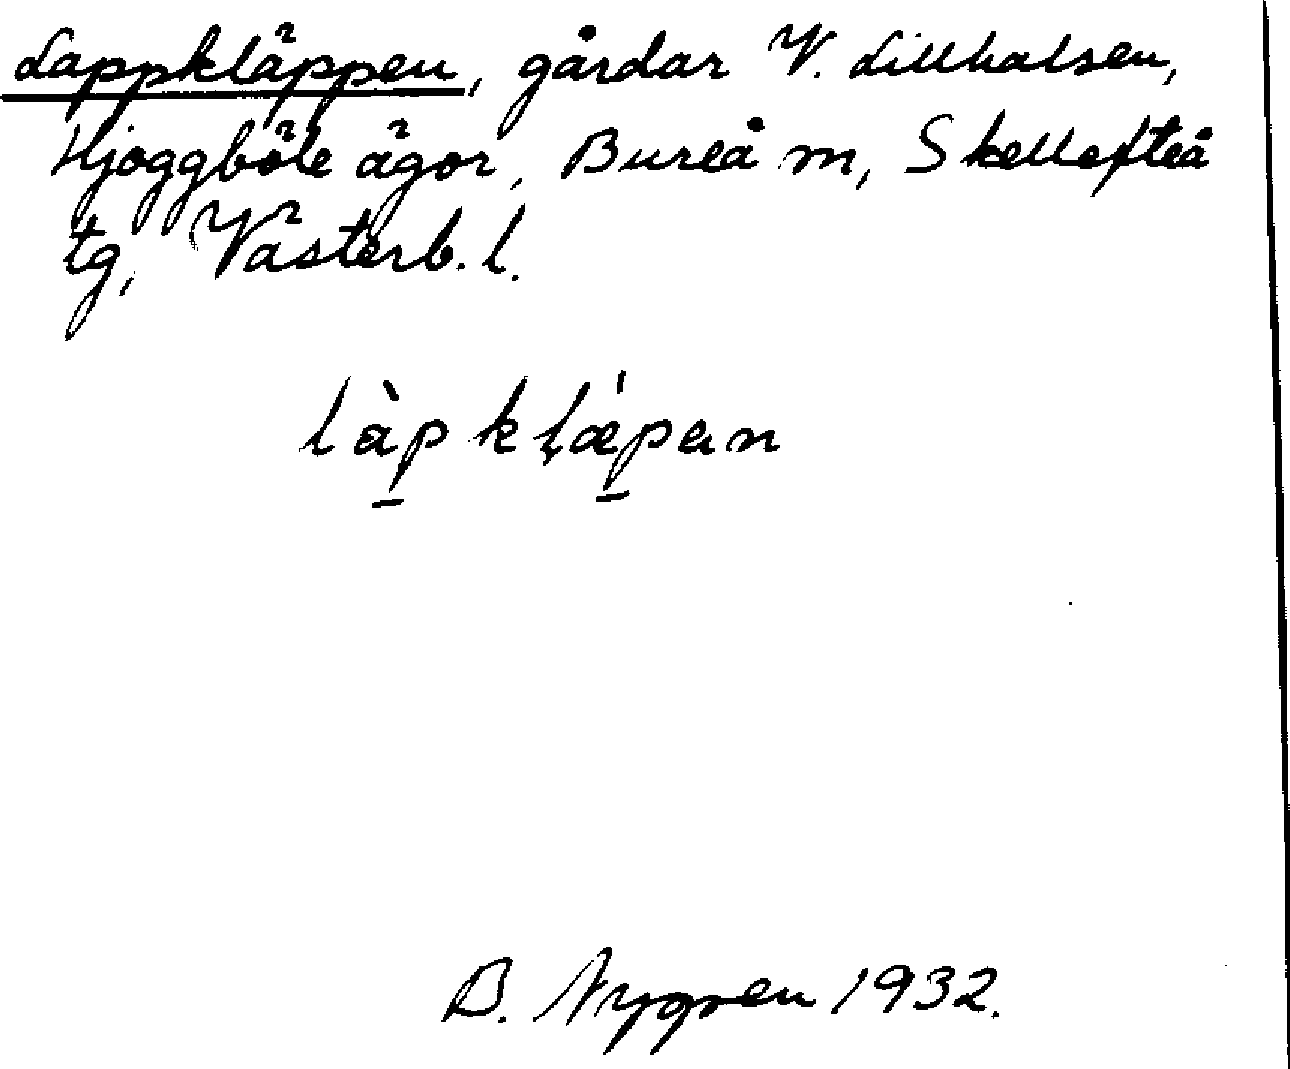 Lappkläppen, gårdar V. Lillhalsen,
Hjoggböle ägor, Bureå m, Skellefteå
tg, Västerb. l.
làp̱ kḷǽp̱ən
B. Nygren 1932.